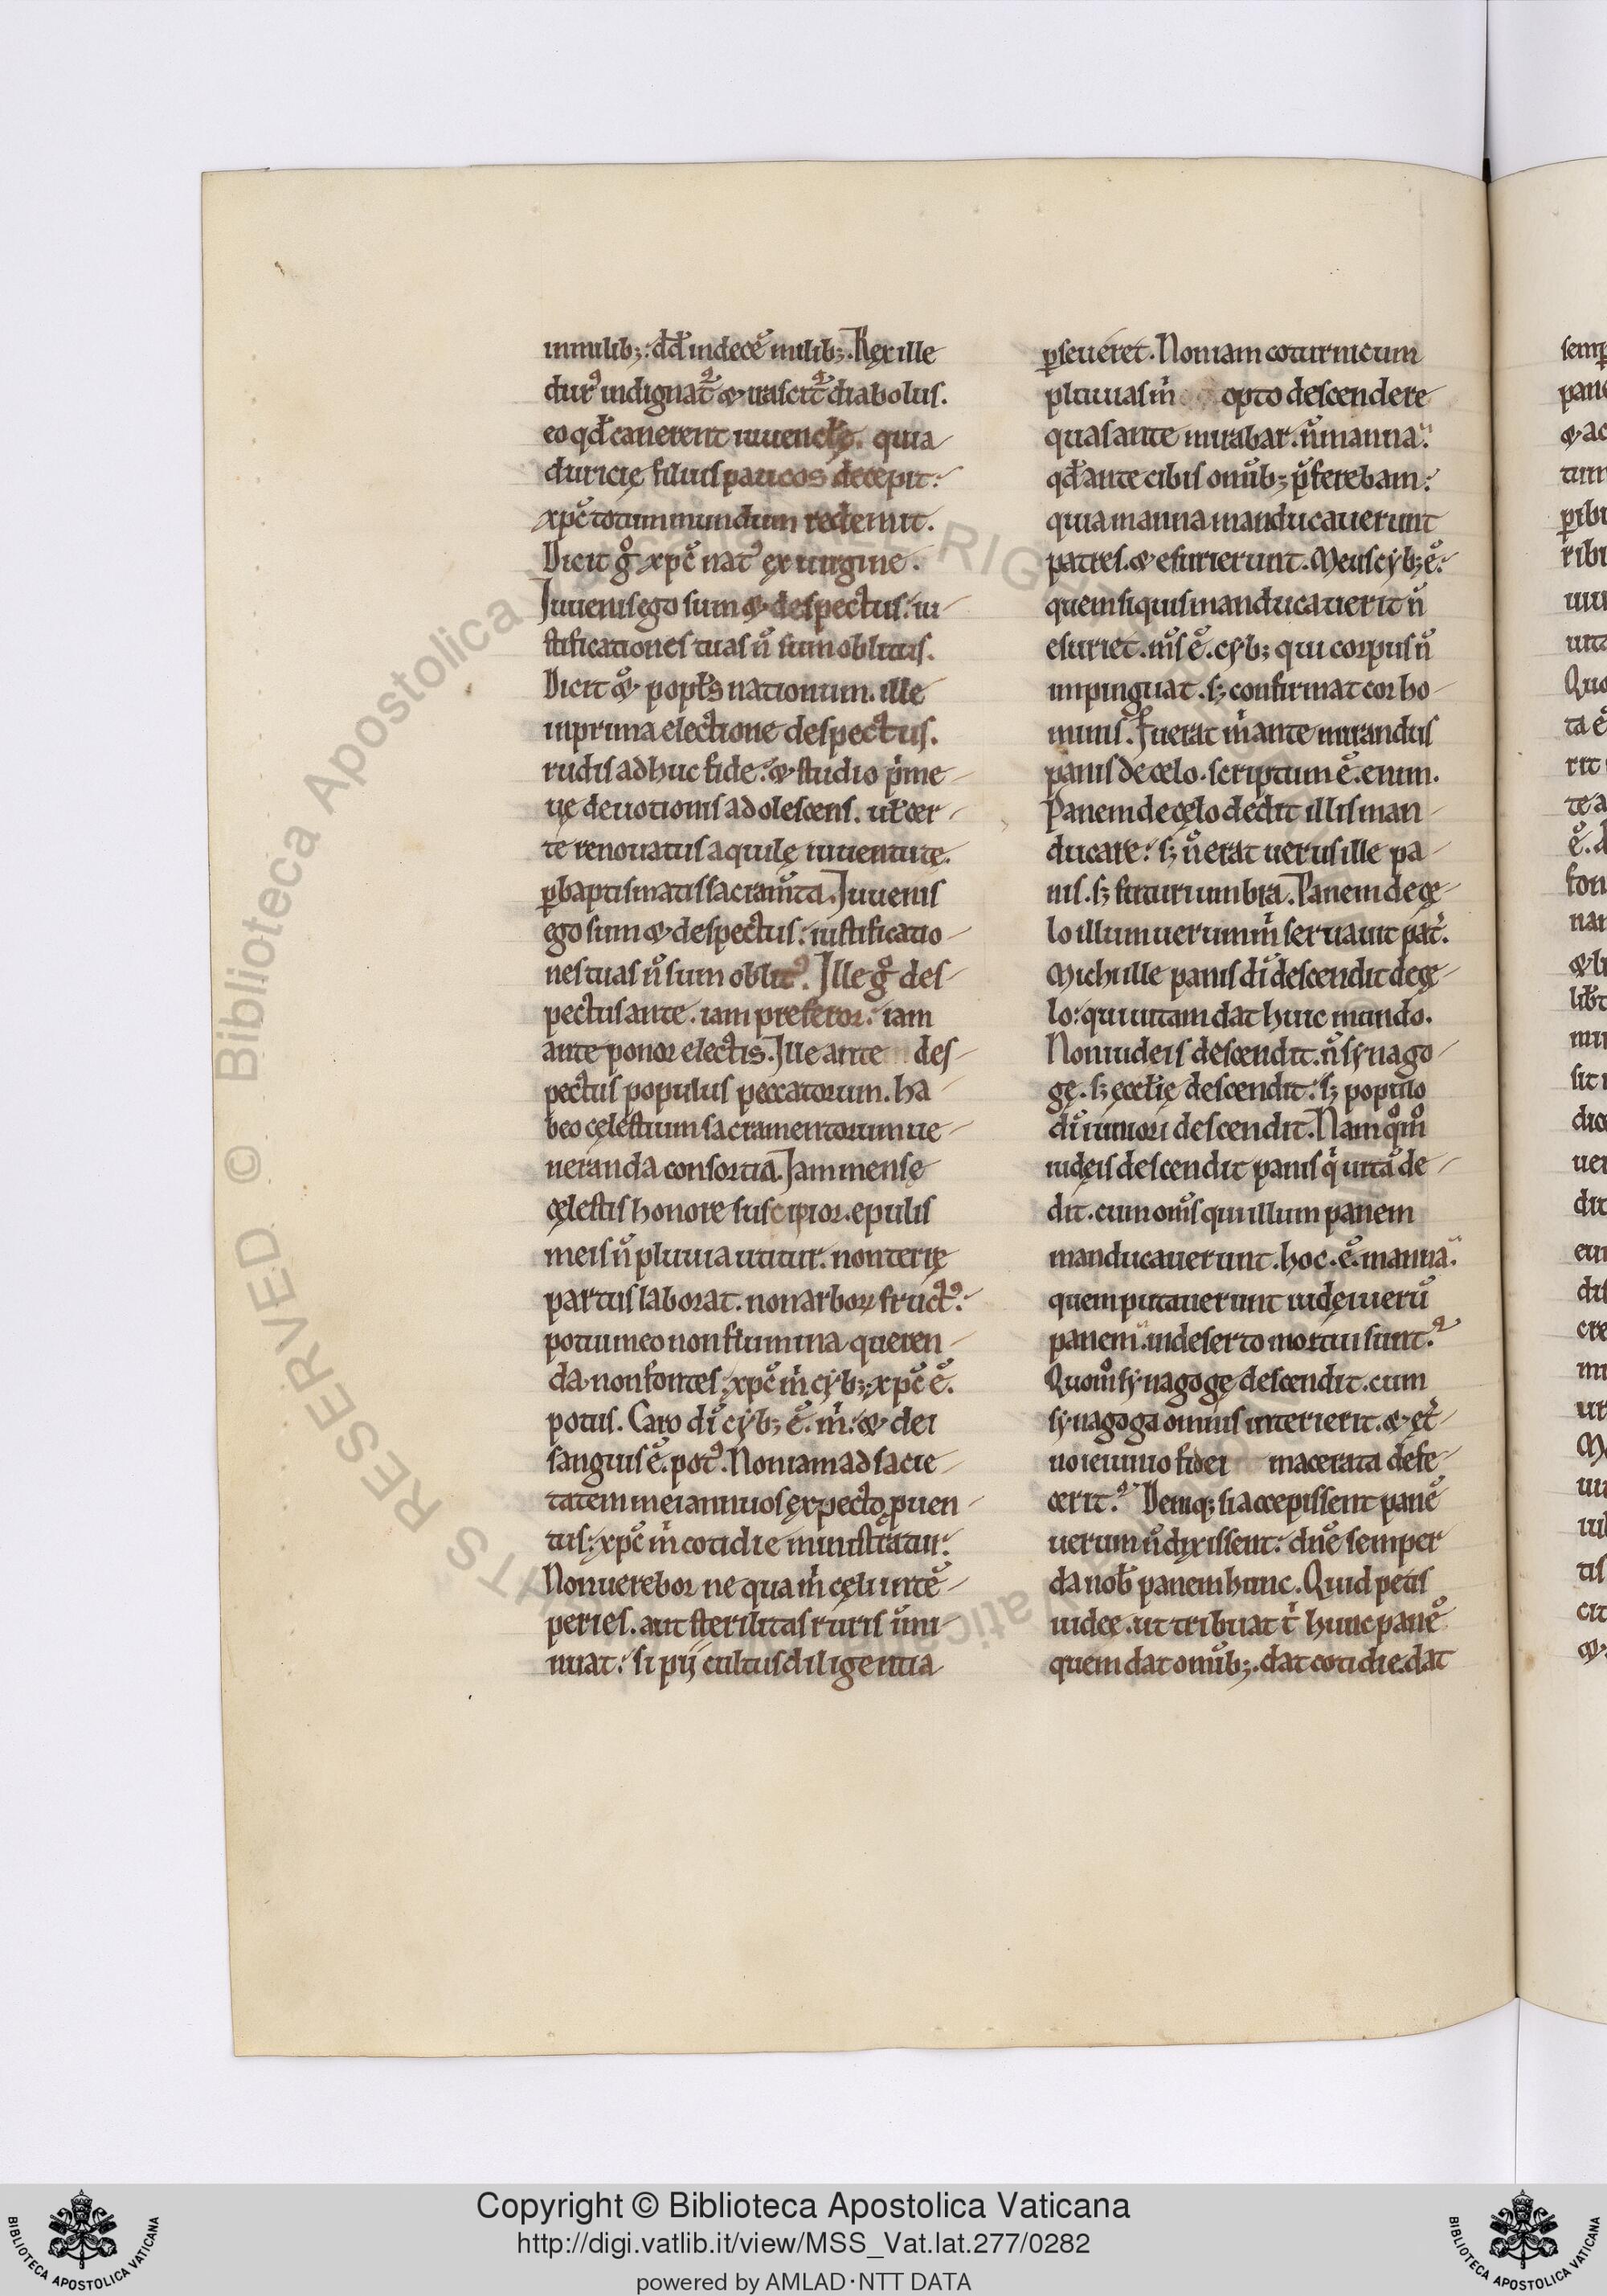 in milib;. dđ in decē milib;. Rex ille
dur⁹ indignat᷑ & irascit᷑ diabolus.
eo qđ canerent iuuenclę. quia
duricię filius paucos decepit:
xp̄c totum mundum redemit.
Dicit gͦ xp̄c nat⁹ ex uirgine.
Iuuenis ego sum & despectus: iu-
stificationes tuas n̄ sum oblitus.
Dicit & popls̄ nationum. ille
in prima electione despectus.
rudis adhuc fide: & studio pͥme-
uę deuotionis adolescens. ul̄ cer-
te renouatus aquilę iuuentute.
ꝑ baptismatis sacram̄ta. Iuuenis
ego sum & despectus: iustificatio-
nes tuas n̄ sum oblit⁹. Ille gͦ des-
pectus ante. iam preferor: iam
ante ponor electis. Ille ante des-
pectus populus peccatorum. ha-
beo cęlestium sacramentorum ue-
neranda consortia. Iam mensę
cęlestis honore suscipior. epulis
meis n̄ pluuia utitur. non terrę
partus laborat. non arborꝝ fruct⁹:
potui meo non flumina queren-
da. non fontes: xp̄c m̄ cyb;. xp̄c ē.
potus. Caro dī cyb; ē. m̄: & dei
sanguis ē. pot⁹. Non iam ad sacie-
tatem mei annuos expecto puen-
tus: xp̄c m̄ cotidie ministratur.
Non uerebor ne qua m̄ cęli intē-
peries. aut sterilitas ruris im̄i-
nuat: si pij cultus diligentia
ꝑseueret. Non iam coturnicum
pluuias m̄ opto descendere
quas ante mirabar. n̄ manna.
qđ ante cibis om̄ib; p̄ferebam:
quia manna manducauerunt
patres. & esurierunt. Meus cyb; ē.
quem si quis manducauerit n̄
esuriet. m̄s ē. cyb; qui corpus n̄
inpinguat. s; confirmat cor ho-
minis. Fuerat m̄ ante mirandus
panis de cęlo. scriptum ē. enim.
Panem de cęlo dedit illis man-
ducare: s; n̄ erat uerus ille pa-
nis. s; futuri umbra. Panem de cę-
lo illum uerum m̄ seruauit pat᷑.
Michi ille panis dī descendit de cę-
lo: qui uitam dat huic mundo.
Non iudeis descendit. n̄ synago-
gę. s; ęccl̄ię descendit: s; populo
dī iuniori descendit. Nam qͦm̄
iudęis descendit panis qͥ uitā de-
dit. cum om̄s qui illum panem
manducauerunt. hoc. ē. manna.
quem putauerunt iudęi uerū
panem. in deserto mortui sunt.
Quom̄ synagogę descendit. cum
synagoga omnis interierit. & et᷑-
no ieiunio fidei macerata defe-
cerit. Deniq; si accepissent panē
uerum n̄ dixissent: dn̄e semper
da nob̄ panem hunc. Quid petis
iudee. ut tribuat tͥ hunc panē
quem dat om̄ib;. dat cotidie. dat
Copyright © Biblioteca Apostolica Vaticana
http://digi.vatlib.it/view/MSS_Vat.lat.277/0282
powered by AMLAD·NTT DATA